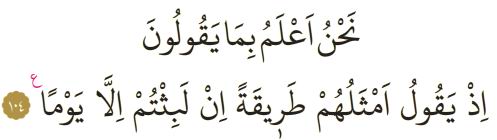 نَحْنُ اَعْلَمُ بِمَا يَقُولُونَ
اِذْ يَقُولُ اَمْثَلُهُمْ طَرٖيقَةً اِنْ لَبِثْتُمْ اِلَّا يَوْمًا ۧ ﴿١٠٤﴾